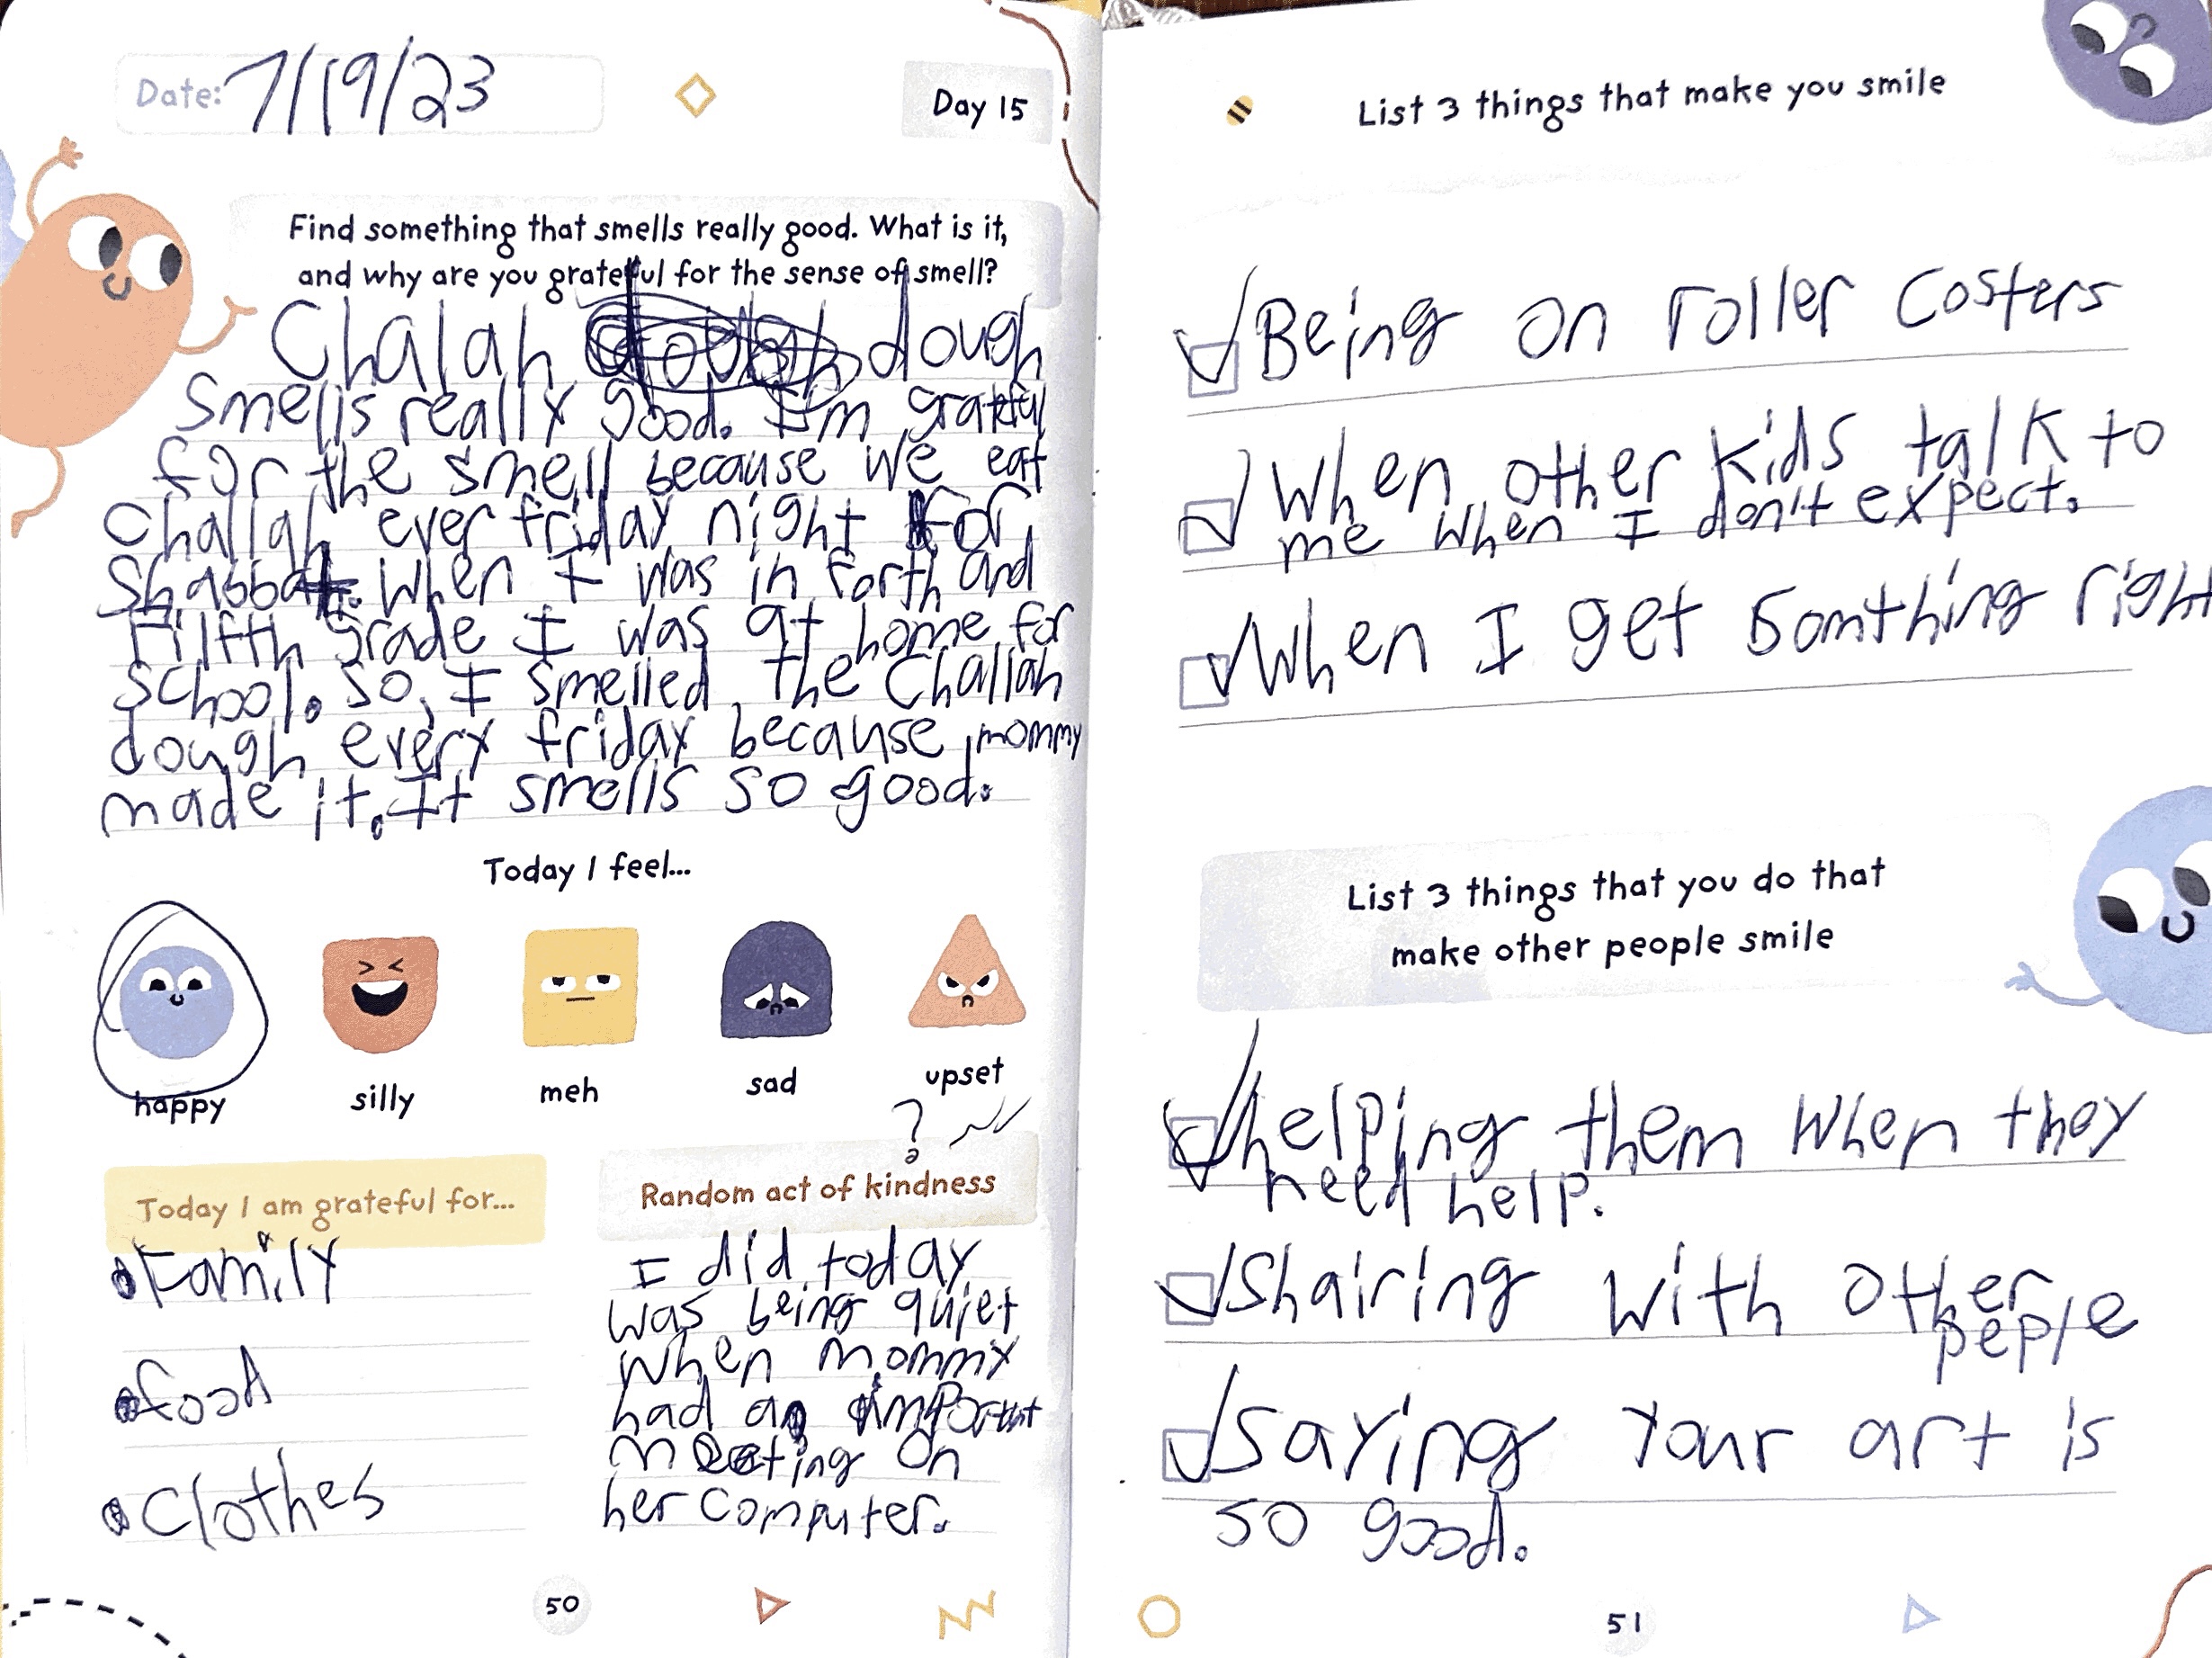 Date: 7/19/23
Day 15
Find something that smells really good. What is it,
and why are you grateful for the sense of smell?
Chalah dough
Smells really good. I'm grateful
for the smell because we eat
Challah ever friday night for
Shabbat. When I was in forth and
Fifth grade I was at home for
School. So, I smelled the Challah
dough every friday because mommy
made it. It smells so good.
Today I feel...
happy silly meh sad upset
?
Today I am grateful for...
Family
food
Clothes
Random act of kindness
I did today
was being quiet
when mommy
had an important
meeting on
her computer.
50
List 3 things that make you smile
Being on roller Costers
When other kids talk to
me when I don't expect.
When I get somthing right
List 3 things that you do that
make other people smile
helping them when they
need help.
Shairing with other
peple
Saying your art is
so good.
51